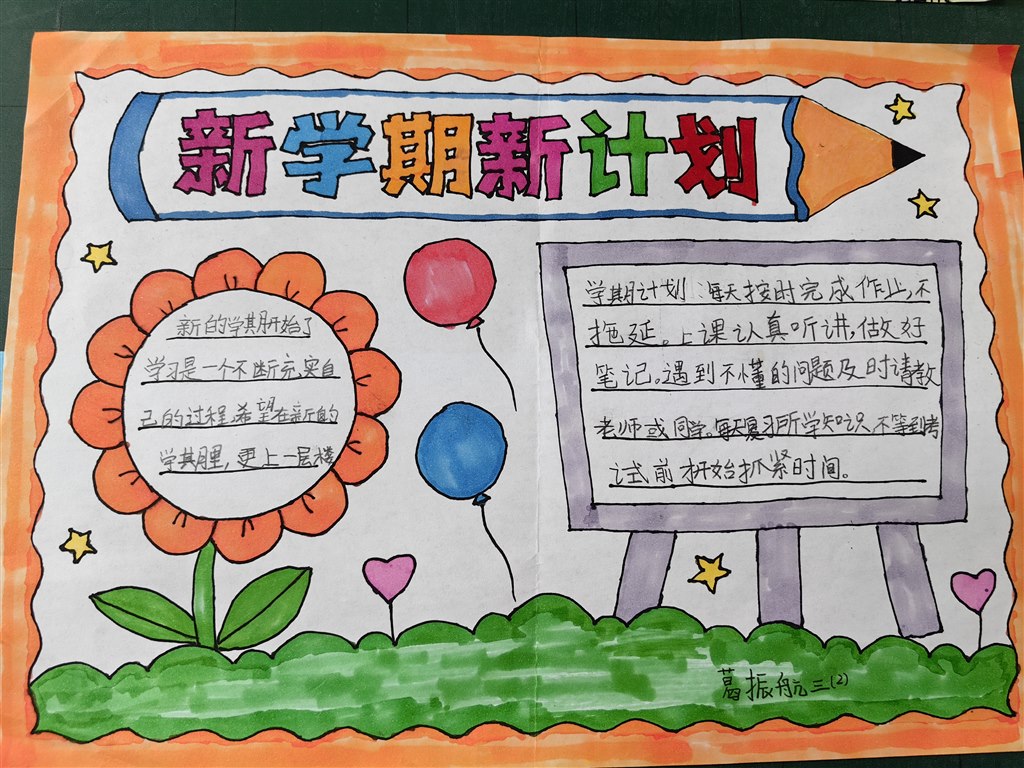 新学期新计划
新的学期开始了
学习是一个不断充实自
己的过程,希望在新的
学期里,更上一层楼
学期计划:每天按时完成作业,不
拖延。上课认真听讲,做好
笔记。遇到不懂的问题及时请教
老师或同学。每天复习所学知识,不等到考
试前才开始抓紧时间。
葛振航三(2)